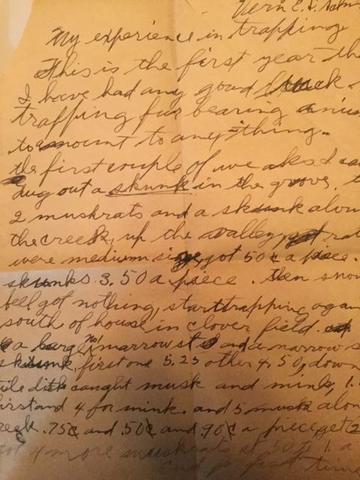 Vern E.
My experience in trapping
This is the first year th
I have had any good luck
trapping fur bearing anim
to amount to anything.
the first couple of weeks I
dug out a skunk in the groove,
2 muskrats and a skunk alon
the creek up the valley, rat
were medium size, got 50¢ a piece.
skunks 3.50 a piece. then snow
fell got nothing, start trapping again
south of house in clover field.
a large narrow and a narrow s
skunk first one 5.25 other 4.50, down
tile ditch caught musk and mink, 1.
first and 4 for mink. and 5 musk alon
creek. 75¢ and 50¢ and 90¢ a piece get 2
got 4 more muskrats at 50 1. a
and time